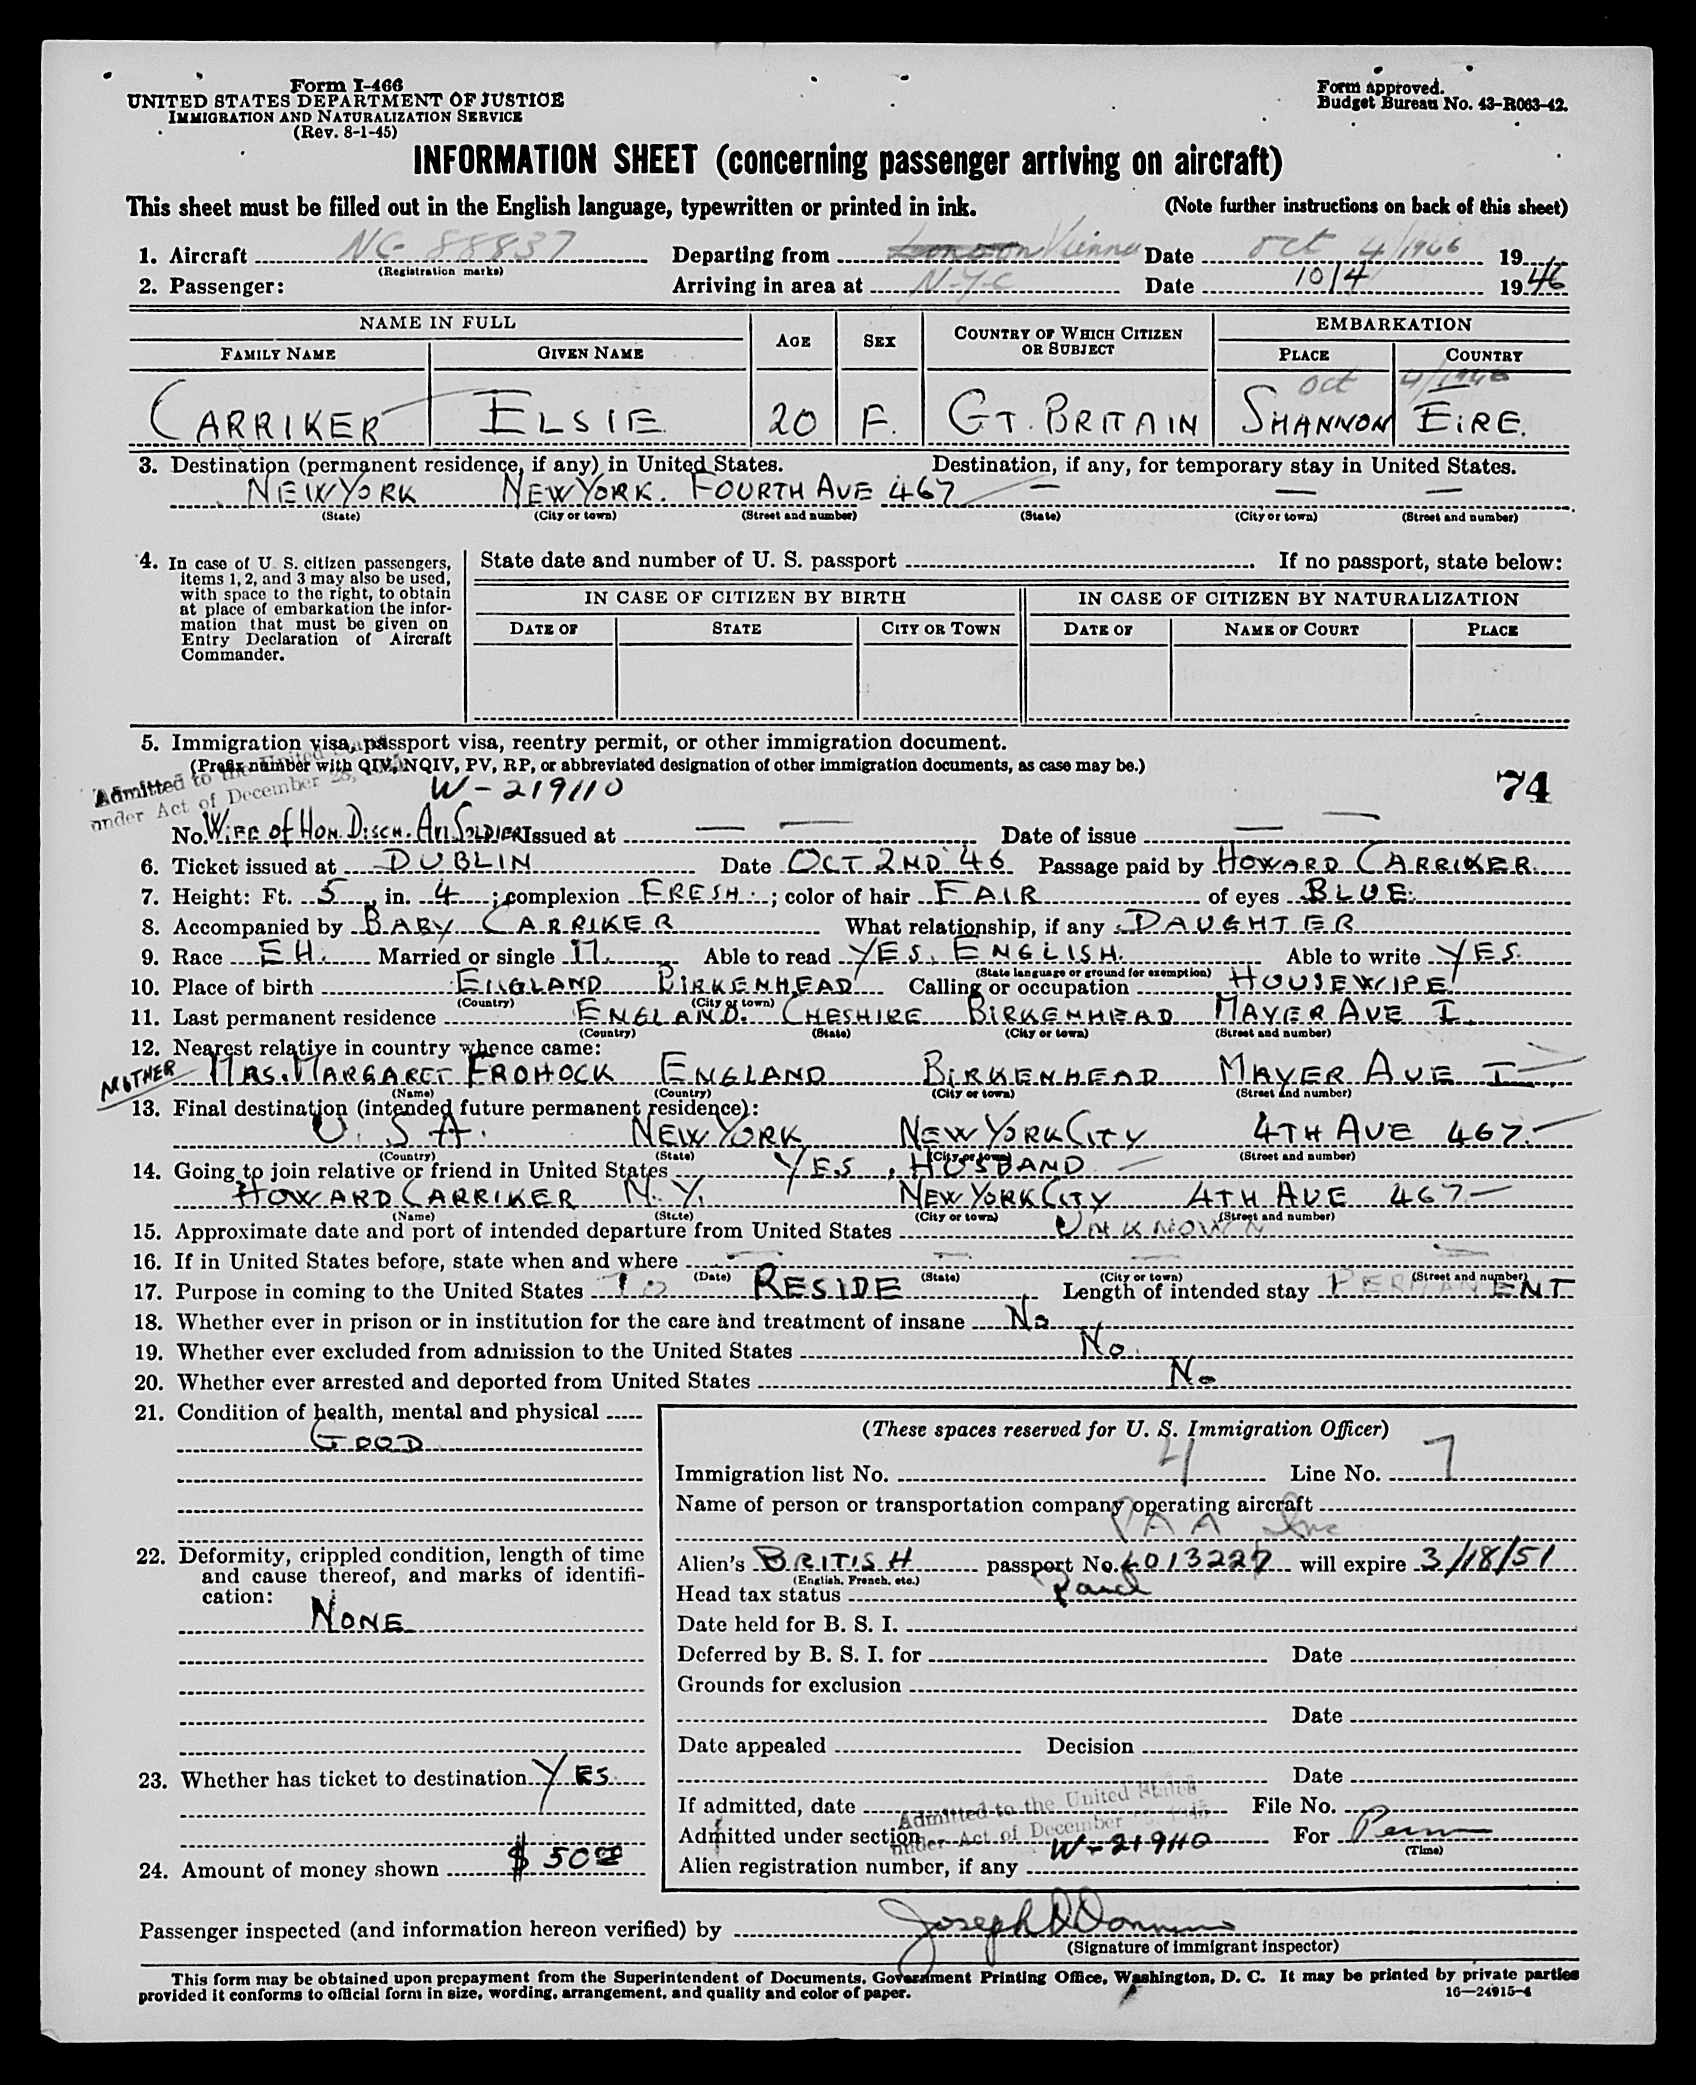 Form I-466
UNITED STATES DEPARTMENT OF JUSTICE
IMMIGRATION AND NATURALIZATION SERVICE
(Rev. 8-1-45)
Form approved.
Budget Bureau No. 43-R063-42.
INFORMATION SHEET (concerning passenger arriving on aircraft)
This sheet must be filled out in the English language, typewritten or printed in ink. (Note further instructions on back of this sheet)
1. Aircraft NC- 88837 Departing from London Vienna Date Oct 4/1946 19
(Registration marks)
2. Passenger: Arriving in area at N-Y-C Date 10/4 1946
NAME IN FULL AGE SEX COUNTRY OF WHICH CITIZEN OR SUBJECT EMBARKATION
FAMILY NAME GIVEN NAME PLACE COUNTRY
Oct 4/1946
CARRIKER ELSIE 20 F. GT. BRITAIN SHANNON EIRE.
3. Destination (permanent residence, if any) in United States. Destination, if any, for temporary stay in United States.
NEW YORK NEW YORK. FOURTH AVE 467 — — —
(State) (City or town) (Street and number) (State) (City or town) (Street and number)
4. In case of U. S. citizen passengers, items 1, 2, and 3 may also be used, with space to the right, to obtain at place of embarkation the information that must be given on Entry Declaration of Aircraft Commander.
State date and number of U. S. passport If no passport, state below:
IN CASE OF CITIZEN BY BIRTH IN CASE OF CITIZEN BY NATURALIZATION
DATE OF STATE CITY OR TOWN DATE OF NAME OF COURT PLACE
5. Immigration visa, passport visa, reentry permit, or other immigration document.
(Prefix number with QIV, NQIV, PV, RP, or abbreviated designation of other immigration documents, as case may be.)
Admitted to the United States
under Act of December 28,
W-219110
74
No. WIFE OF HON. DISCH. AM SOLDIER Issued at — — Date of issue — —
6. Ticket issued at DUBLIN Date OCT 2ND 46 Passage paid by HOWARD CARRIKER
7. Height: Ft. 5, in. 4; complexion FRESH; color of hair FAIR of eyes BLUE
8. Accompanied by BABY CARRIKER What relationship, if any DAUGHTER
9. Race EH. Married or single M. Able to read YES, ENGLISH. Able to write YES
(State language or ground for exemption)
10. Place of birth ENGLAND BIRKENHEAD Calling or occupation HOUSEWIFE
(Country) (City or town)
11. Last permanent residence ENGLAND. CHESHIRE BIRKENHEAD MAYER AVE I.
(Country) (State) (City or town) (Street and number)
12. Nearest relative in country whence came:
MOTHER MRS. MARGARET FROHOCK ENGLAND BIRKENHEAD MAYER AVE I
(Name) (Country) (City or town) (Street and number)
13. Final destination (intended future permanent residence):
U. S A. NEW YORK NEW YORK CITY 4TH AVE 467.
(Country) (State) (City or town) (Street and number)
14. Going to join relative or friend in United States YES, HUSBAND
HOWARD CARRIKER N. Y. NEW YORK CITY 4TH AVE 467
(Name) (State) (City or town) (Street and number)
15. Approximate date and port of intended departure from United States UNKNOWN
16. If in United States before, state when and where — — — —
(Date) (State) (City or town) (Street and number)
17. Purpose in coming to the United States TO RESIDE Length of intended stay PERMANENT
18. Whether ever in prison or in institution for the care and treatment of insane No
19. Whether ever excluded from admission to the United States No.
20. Whether ever arrested and deported from United States No
21. Condition of health, mental and physical
GOOD
22. Deformity, crippled condition, length of time and cause thereof, and marks of identification:
NONE
23. Whether has ticket to destination YES
24. Amount of money shown $ 50 00
(These spaces reserved for U. S. Immigration Officer)
Immigration list No. 4 Line No. 7
Name of person or transportation company operating aircraft
PAA Inc
Alien's BRITISH passport No. 6013227 will expire 3/18/51
(English, French, etc.)
Head tax status Paid
Date held for B. S. I.
Deferred by B. S. I. for Date
Grounds for exclusion
Date
Date appealed Decision
Date
If admitted, date File No.
Admitted to the United States
under Act of December 28, 1945
Admitted under section W-219110 For Perm
(Time)
Alien registration number, if any
Passenger inspected (and information hereon verified) by Joseph
(Signature of immigrant inspector)
This form may be obtained upon prepayment from the Superintendent of Documents, Government Printing Office, Washington, D. C. It may be printed by private parties
provided it conforms to official form in size, wording, arrangement, and quality and color of paper. 16—24915-4